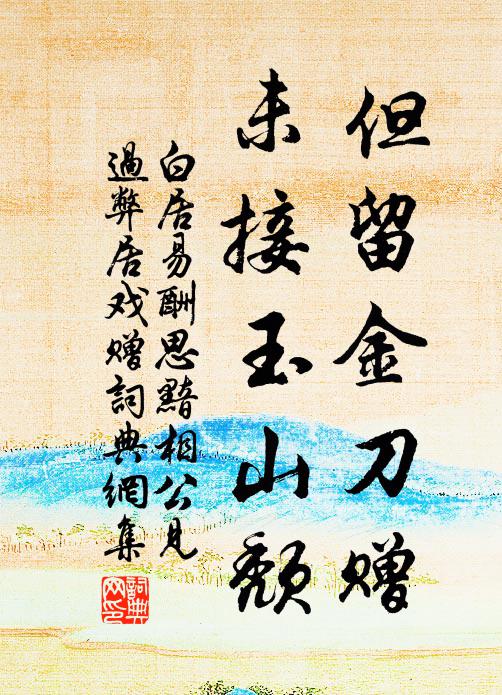 但留金刀赠
未接玉山颓
白居易酬思黯相公见
過弊居戏赠詞典網集
詞典網印